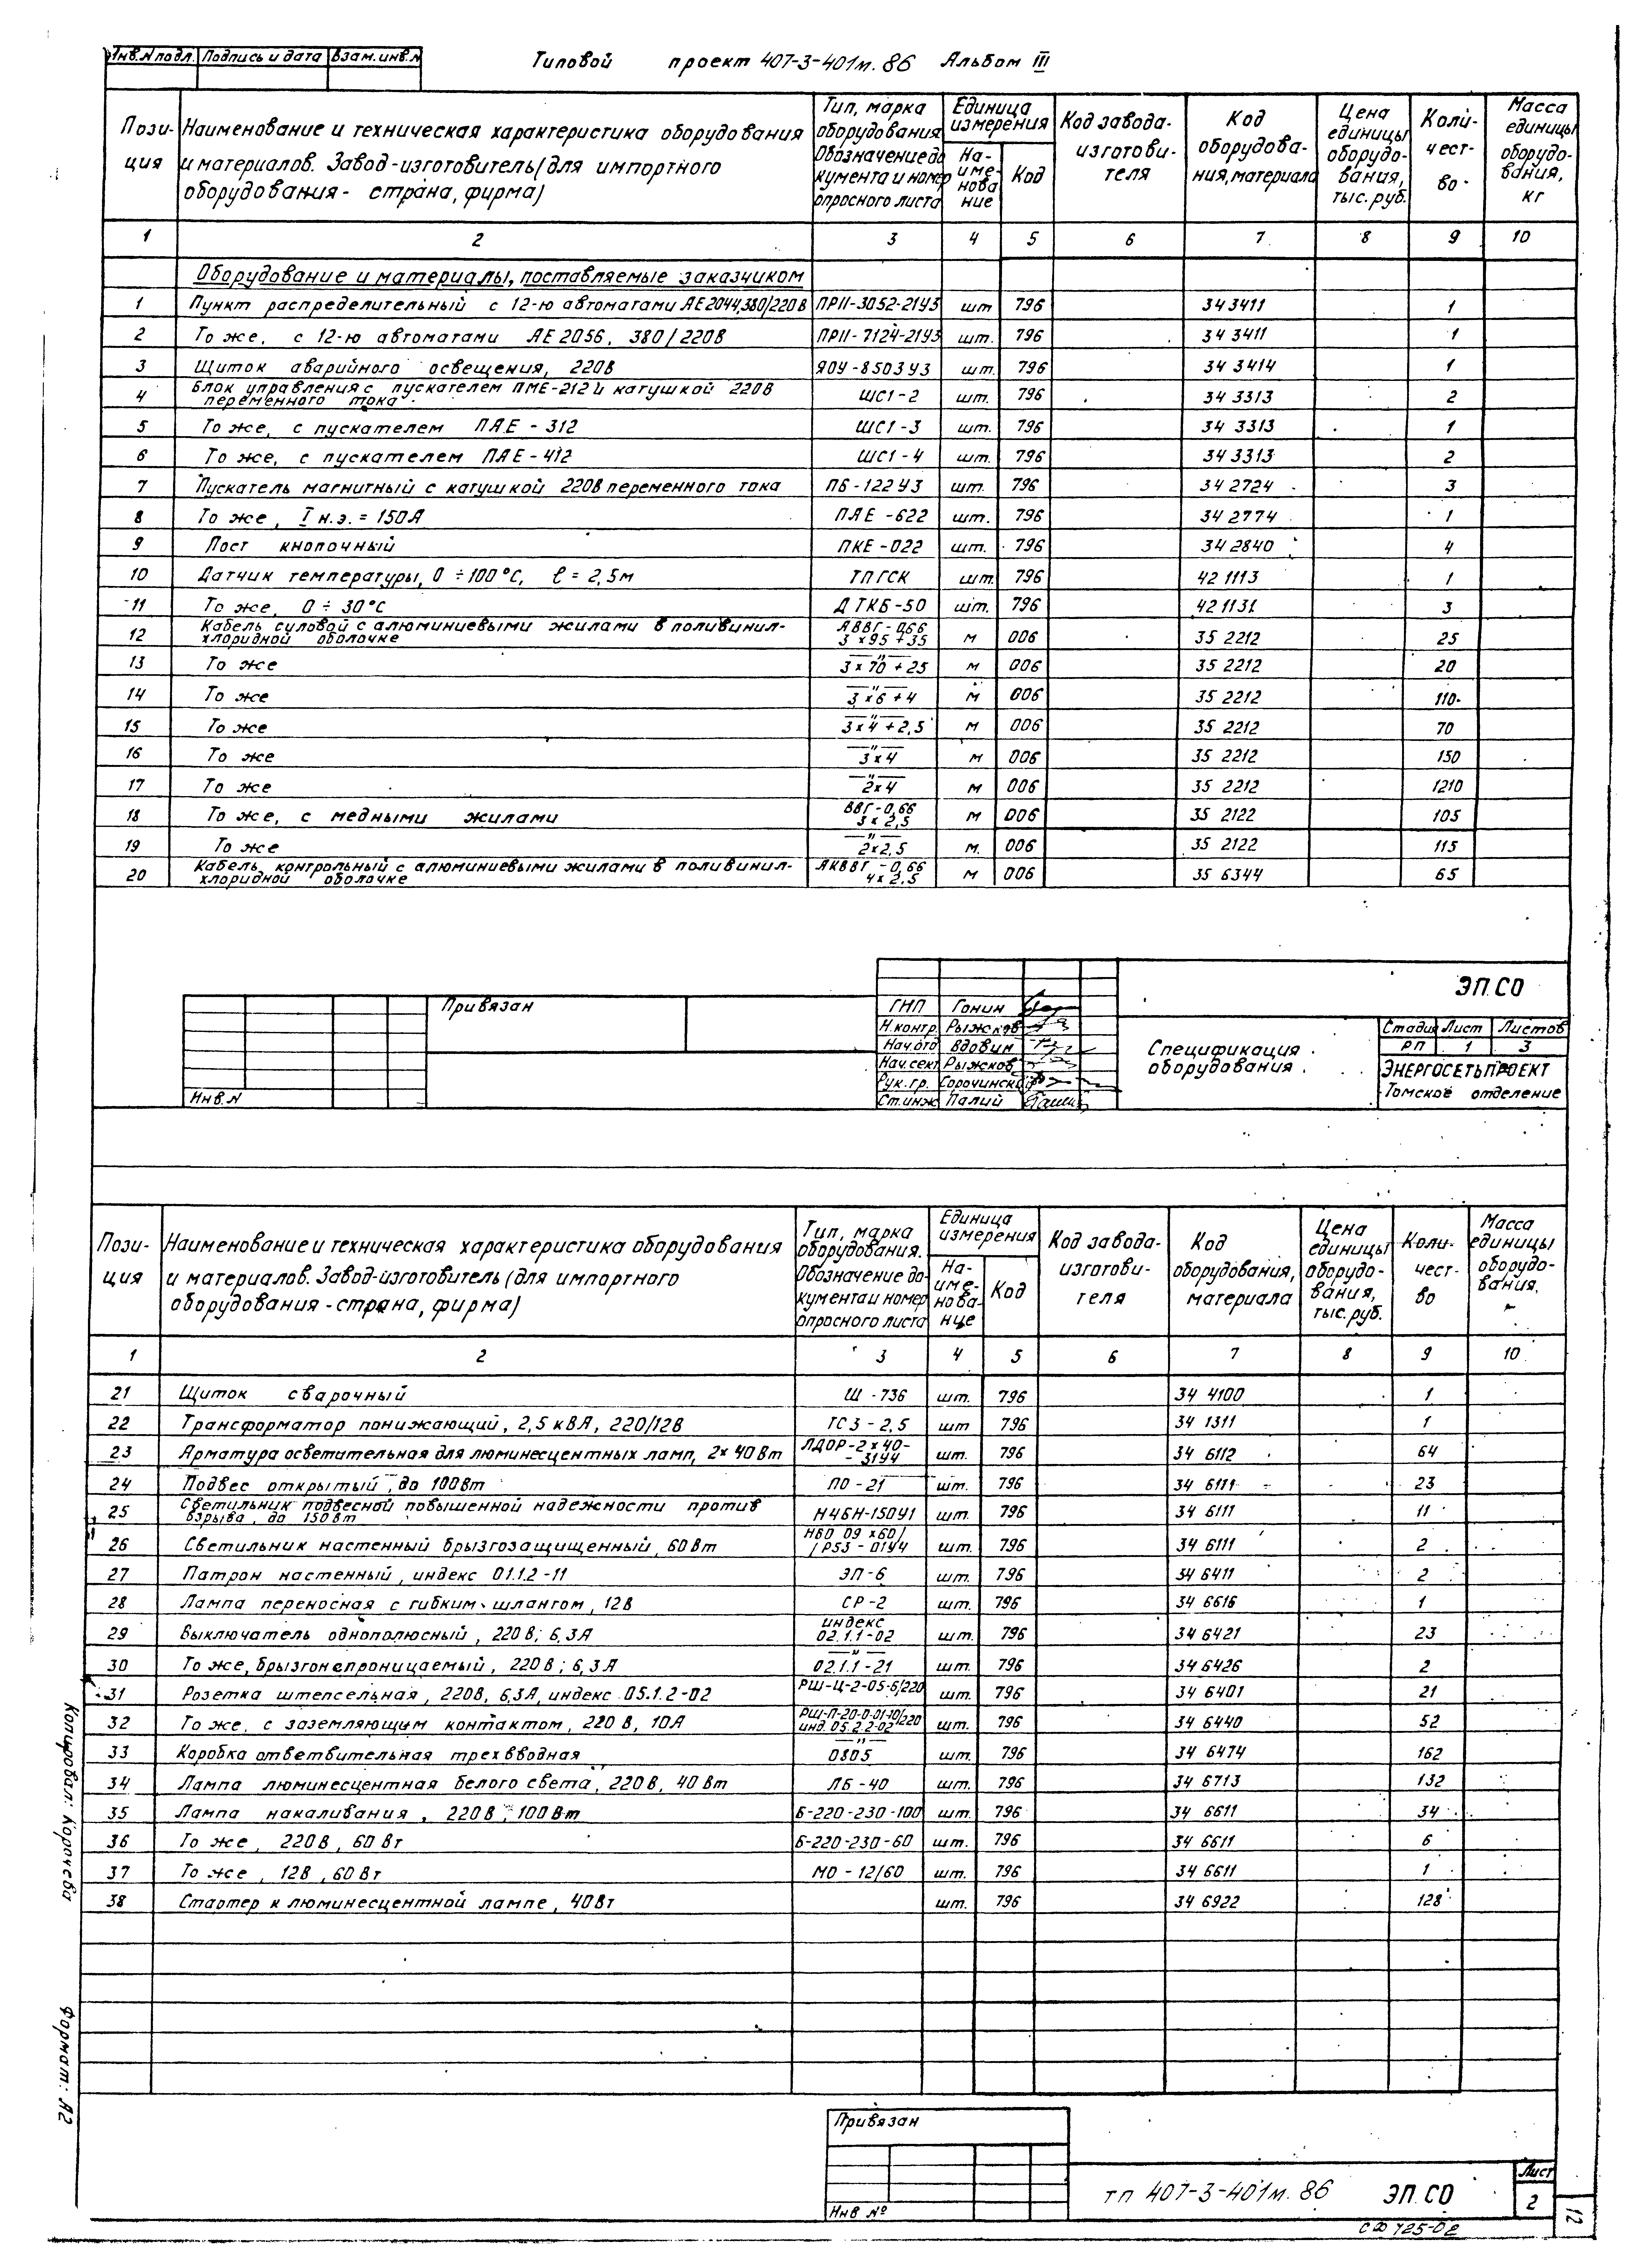 Инв.N подл. Подпись и дата Взам.инв.N
Типовой проект 407-3-401м.86 Альбом III
Пози-ция
Наименование и техническая характеристика оборудования и материалов. Завод-изготовитель (для импортного оборудования - страна, фирма)
Тип, марка оборудования. Обозначение документа и номер опросного листа
Единица измерения
На-име-нова ние
Код
Код завода-изготови-теля
Код оборудова-ния, материала
Цена единицы оборудо-вания, тыс.руб.
Коли-чест-во
Масса единицы оборудо-вания, кг
1 2 3 4 5 6 7 8 9 10
Оборудование и материалы, поставляемые заказчиком
1 Пункт распределительный с 12-ю автоматами АЕ2044,380/220В ПР11-3052-21У3 шт 796 34 3411 1
2 То же, с 12-ю автоматами АЕ 2056, 380/220В ПР11-7124-21У3 шт. 796 34 3411 1
3 Щиток аварийного освещения, 220В ЯОУ-8503У3 шт. 796 34 3414 1
4 Блок управления с пускателем ПМЕ-212 и катушкой 220В
переменного тока ШС1-2 шт. 796 34 3313 2
5 То же, с пускателем ПАЕ-312 ШС1-3 шт. 796 34 3313 1
6 То же, с пускателем ПАЕ-412 ШС1-4 шт. 796 34 3313 2
7 Пускатель магнитный с катушкой 220В переменного тока ПБ-122У3 шт. 796 34 2724 3
8 То же, I н.э.=150А ПАЕ-622 шт. 796 34 2774 1
9 Пост кнопочный ПКЕ-022 шт. 796 34 2840 4
10 Датчик температуры, 0÷100°С, ℓ=2,5м ТПГСК шт. 796 42 1113 1
11 То же, 0÷30°С ДТКБ-50 шт. 796 42 1131 3
12 Кабель силовой с алюминиевыми жилами в поливинил-
хлоридной оболочке АВВГ-0,66 3х95+35 м 006 35 2212 25
13 То же —"— 3х70+25 м 006 35 2212 20
14 То же —"— 3х6+4 м 006 35 2212 110
15 То же —"— 3х4+2,5 м 006 35 2212 70
16 То же —"— 3х4 м 006 35 2212 150
17 То же —"— 2х4 м 006 35 2212 1210
18 То же, с медными жилами ВВГ-0,66 3х2,5 м 006 35 2122 105
19 То же —"— 2х2,5 м. 006 35 2122 115
20 Кабель контрольный с алюминиевыми жилами в поливинил-
хлоридной оболочке АКВВГ-0,66 4х2,5 м 006 35 6344 65
Привязан
Инв.N
ГИП Гонин
Н.контр. Рыжков
Нач.отд Вдовин
Нач.сект. Рыжков
Рук.гр. Сорочинский
Ст.инж Палий
ЭП.СО
Спецификация оборудования
Стадия Лист Листов
РП 1 3
ЭНЕРГОСЕТЬПРОЕКТ
Томское отделение
Пози-ция
Наименование и техническая характеристика оборудования и материалов. Завод-изготовитель (для импортного оборудования - страна, фирма)
Тип, марка оборудования. Обозначение документа и номер опросного листа
Единица измерения
На-име-нова-ние
Код
Код завода-изготови-теля
Код оборудования, материала
Цена единицы оборудо-вания, тыс.руб.
Коли-чест-во
Масса единицы оборудо-вания,
1 2 3 4 5 6 7 8 9 10
21 Щиток сварочный Щ-736 шт. 796 34 4100 1
22 Трансформатор понижающий, 2,5 кВА, 220/12В ТСЗ-2,5 шт 796 34 1311 1
23 Арматура осветительная для люминесцентных ламп, 2х40Вт ЛДОР-2х40--31У4 шт. 796 34 6112 64
24 Подвес открытый, до 100Вт ПО-21 шт. 796 34 6111 23
25 Светильник подвесной повышенной надежности против
взрыва, до 150Вт Н4БН-150У1 шт. 796 34 6111 11
26 Светильник настенный брызгозащищенный, 60Вт НБО 09х60/ /Р53-01У4 шт. 796 34 6111 2
27 Патрон настенный, индекс 01.1.2-11 ЭП-6 шт. 796 34 6411 2
28 Лампа переносная с гибким шлангом, 12В СР-2 шт. 796 34 6616 1
29 Выключатель однополюсный, 220В; 6,3А индекс 02.1.1-02 шт. 796 34 6421 23
30 То же, брызгонепроницаемый, 220В; 6,3А —"— 02.1.1-21 шт. 796 34 6426 2
31 Розетка штепсельная, 220В, 6,3А, индекс 05.1.2-02 РШ-Ц-2-05-6/220 шт. 796 34 6401 21
32 То же, с заземляющим контактом, 220В, 10А РШ-П-20-0-01-10/220 инд.05.2.2-02 шт. 796 34 6440 52
33 Коробка ответвительная трехвводная —"— 0805 шт. 796 34 6474 162
34 Лампа люминесцентная белого света, 220В, 40Вт ЛБ-40 шт. 796 34 6713 132
35 Лампа накаливания, 220В, 100Вт Б-220-230-100 шт. 796 34 6611 34
36 То же, 220В, 60Вт Б-220-230-60 шт. 796 34 6611 6
37 То же, 12В, 60Вт МО-12/60 шт. 796 34 6611 1
38 Стартер к люминесцентной лампе, 40Вт шт. 796 34 6922 128
Копировал: Корочева
Формат: А2
Привязан
Инв №
тп 407-3-401м.86 ЭП.СО
Лист
2
12